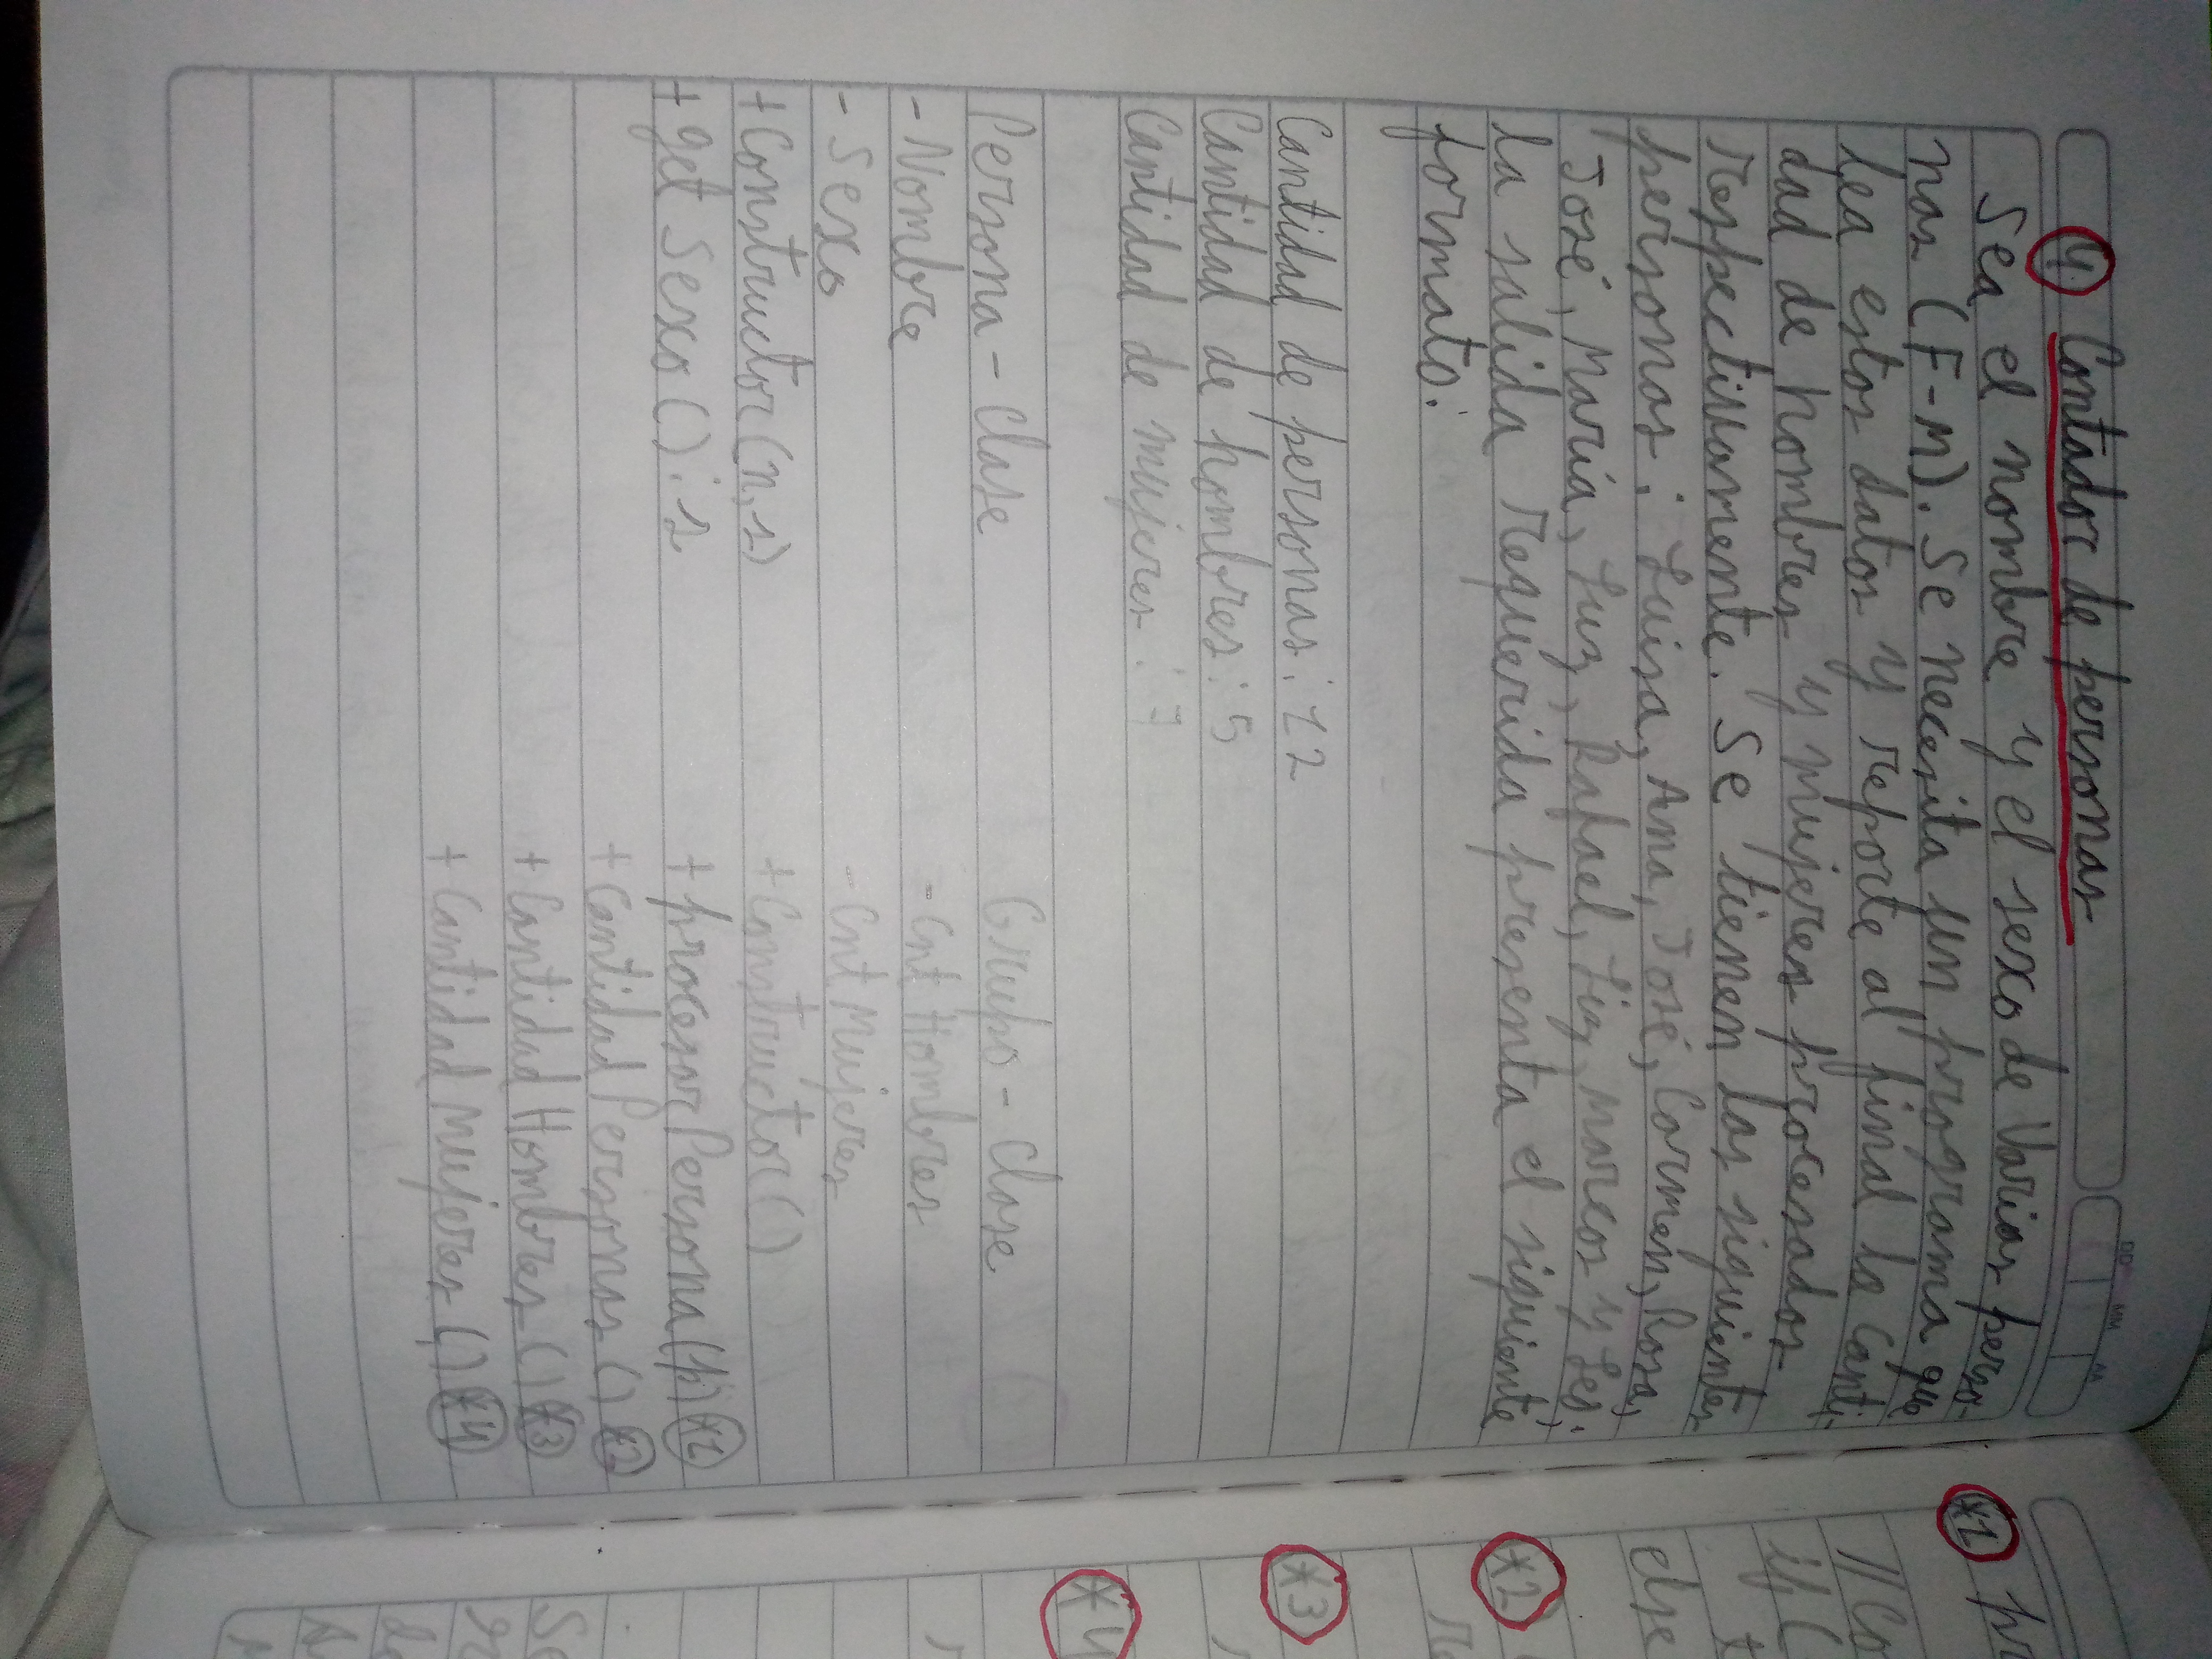 4. Contador de personas
DD MM AA
Sea el nombre y el sexo de varias perso-
nas (F-M). Se necesita un programa que
lea estos datos y reporte al final la canti-
dad de hombres y mujeres procesados
respectivamente. Se tienen las siguientes
personas: Luisa, Ana, José, Carmen, Rosa,
José, María, Luz, Rafael, Liz, Marcos y Leo;
la salida requerida presenta el siguiente
formato:
Cantidad de personas: 12
Cantidad de hombres: 5
Cantidad de mujeres: 7
Persona - Clase
- Nombre
- Sexo
+ Constructor (n, s)
+ get Sexo () : s
Grupo - Clase
- Cnt Hombres
- Cnt Mujeres
+ Constructor ()
+ procesar Persona (p) *1
+ Cantidad Personas () *2
+ Cantidad Hombres () *3
+ Cantidad Mujeres () *4
*1
// Co
if (
else
*2
*3
*4